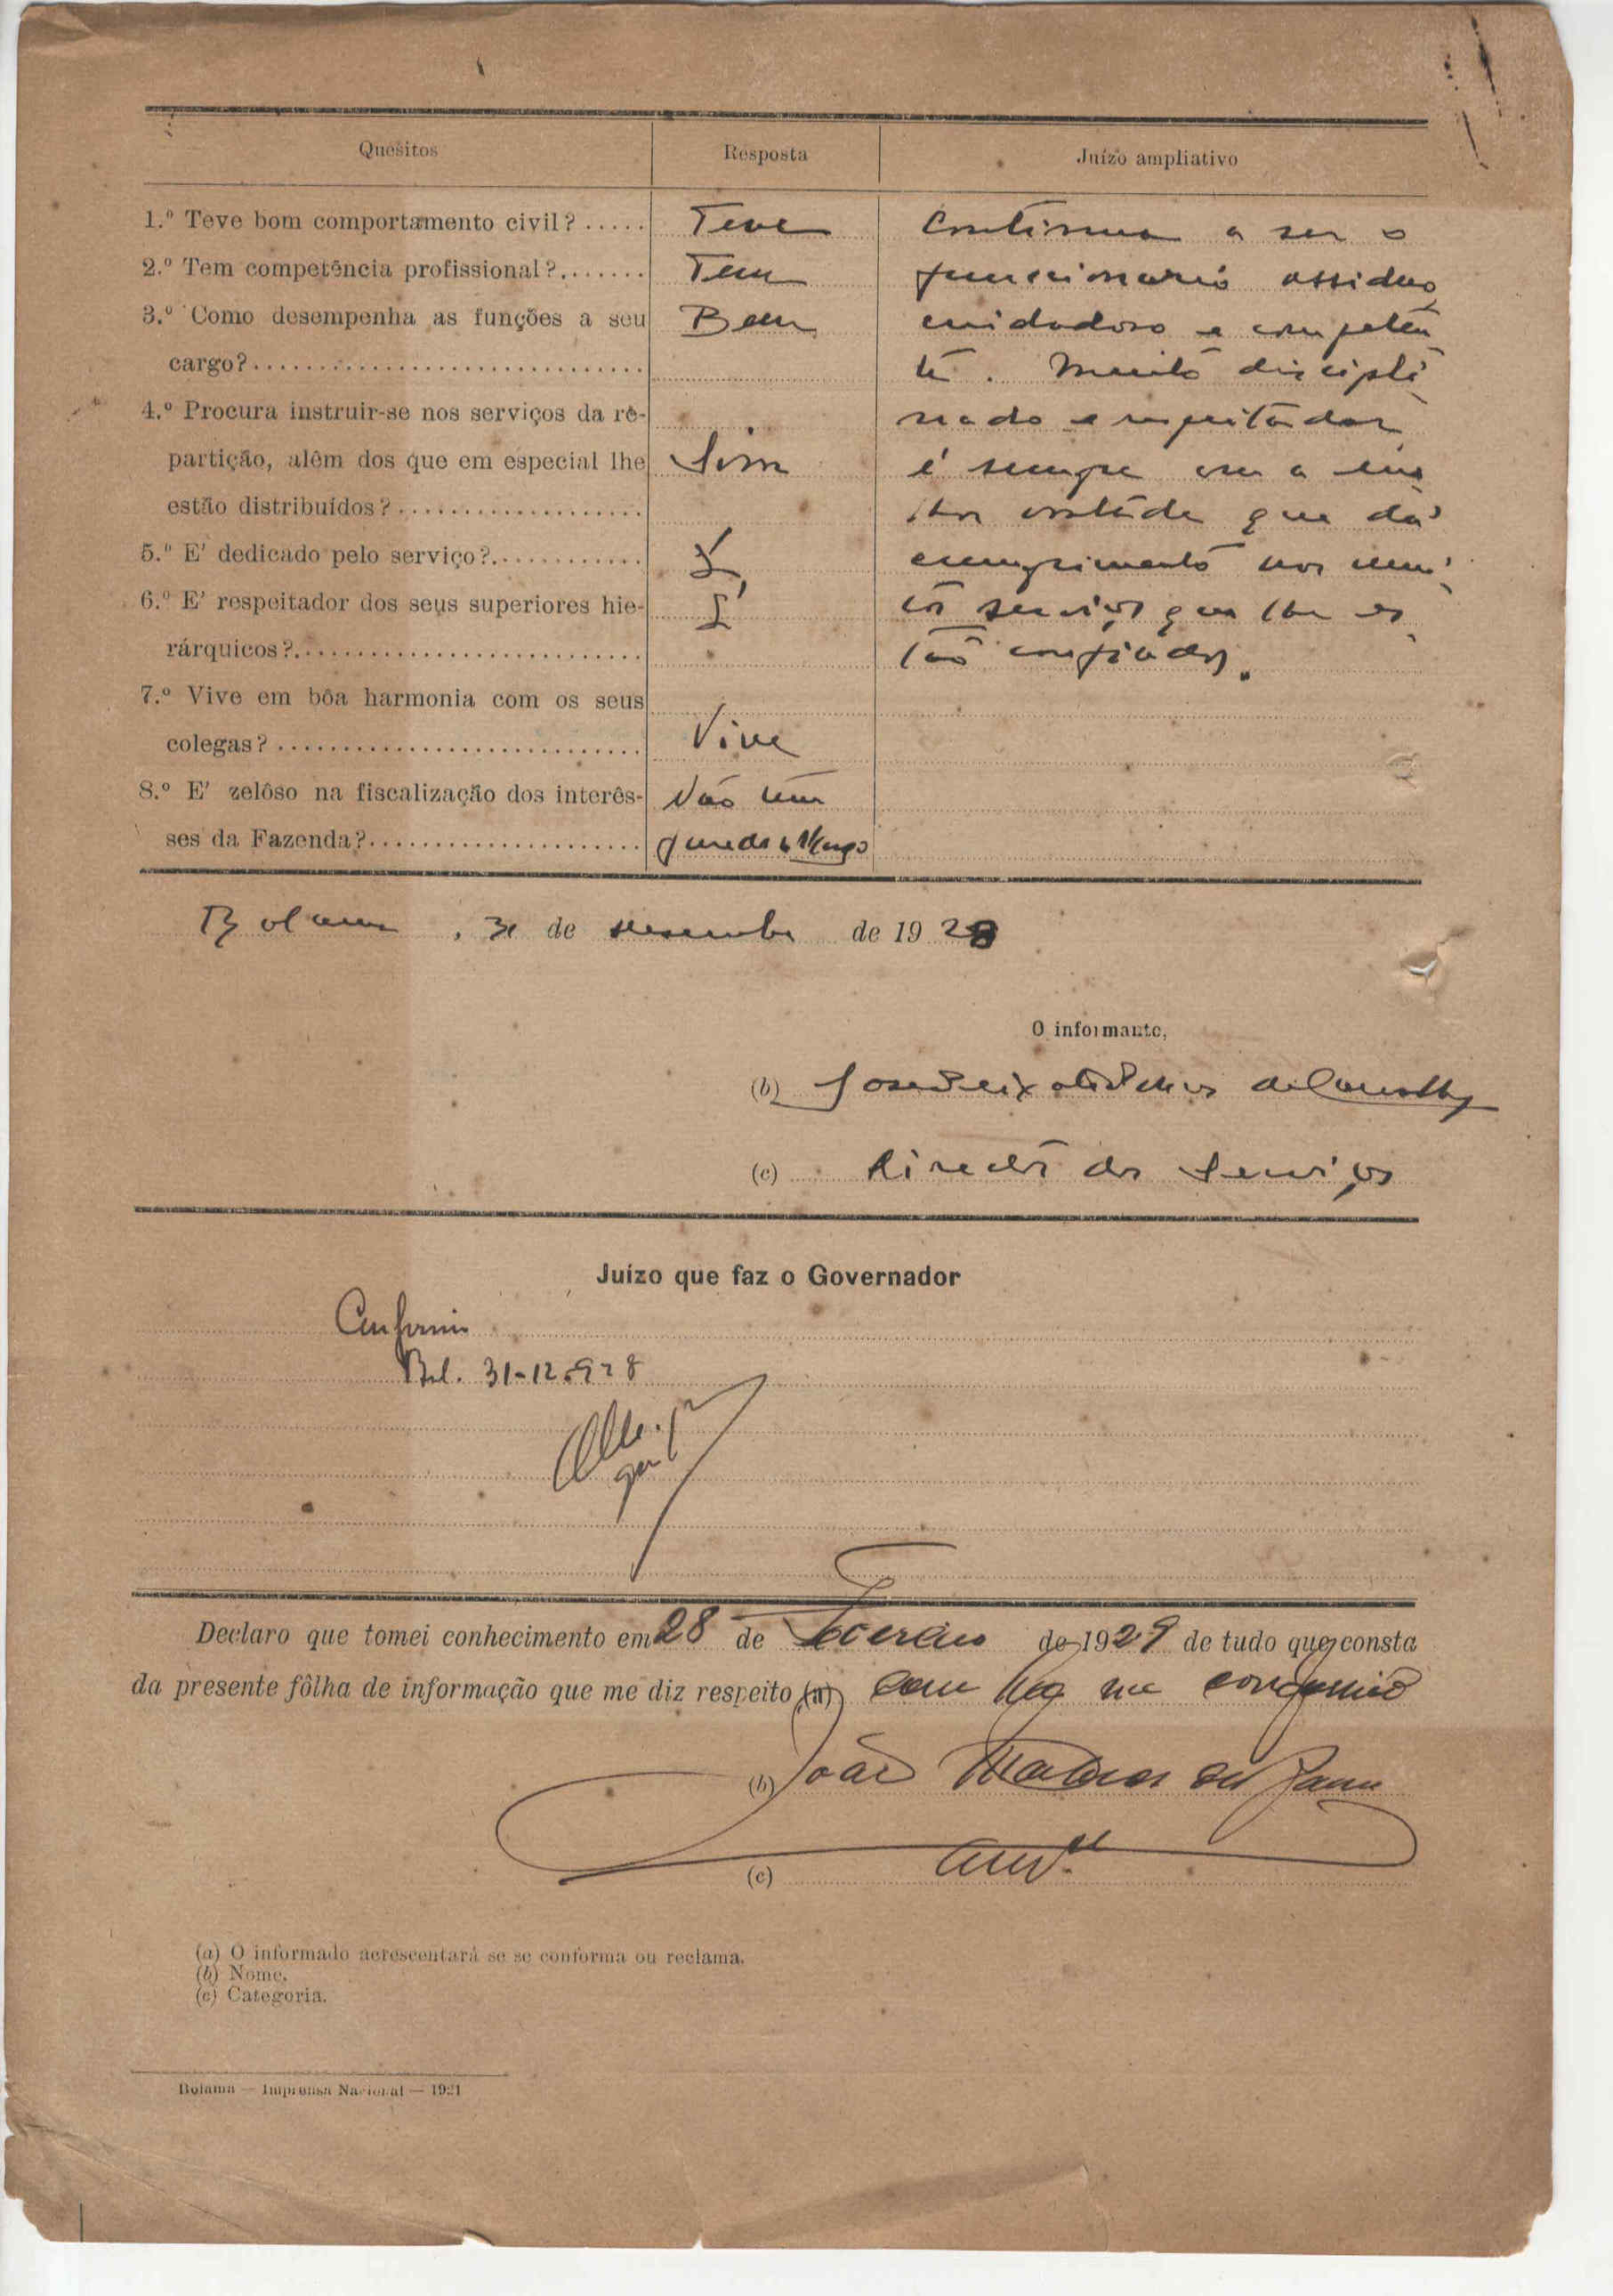 Quesitos Resposta Juízo ampliativo
1.º Teve bom comportamento civil? ..... Teve Continua a ser o
2.º Tem competência profissional?....... Tem funcionario assiduo
3.º Como desempenha as funções a seu Bem cuidadoso e competen
cargo?.............................. te. Muito discipli
4.º Procura instruir-se nos serviços da re- nado e respeitador
partição, além dos que em especial lhe Sim é sempre com a
estão distribuídos?................... vontade que dá
5.º E' dedicado pelo serviço?............ É cumprimento nos
6.º E' respeitador dos seus superiores hie- É serviços que lhe es
rárquicos?.......................... tão confiados.
7.º Vive em bôa harmonia com os seus
colegas?............................ Vive
8.º E' zelôso na fiscalização dos interês- Não tem
ses da Fazenda?.....................
Bolama, 31 de dezembro de 1928
O informante,
(b) José Peixoto
(c) Director dos Serviços
Juízo que faz o Governador
Conforme
Bol. 31-12-928
Declaro que tomei conhecimento em 28 de Fevereiro de 1929 de tudo que consta
da presente fôlha de informação que me diz respeito (a) com que me conformo
(b) João
(c)
(a) O informado acrescentará se se conforma ou reclama.
(b) Nome.
(c) Categoria.
Bolama — Imprensa Nacional — 1921